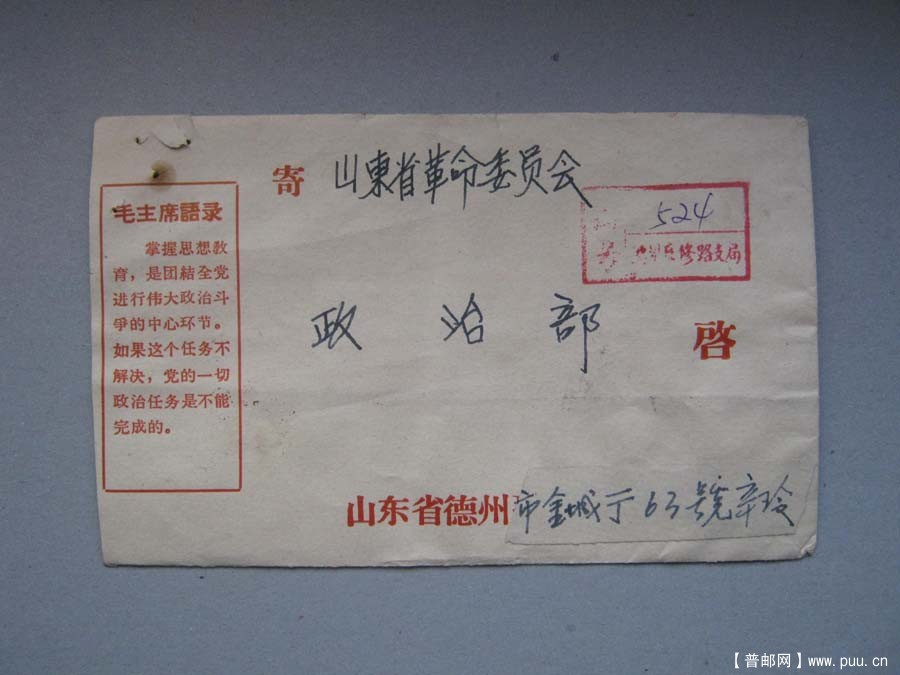 寄 山東省革命委员会
524
修路支局
毛主席語录
掌握思想教
育，是团結全党
进行伟大政治斗
爭的中心环节。
如果这个任务不
解决，党的一切
政治任务是不能
完成的。
政治部 啓
山东省德州市金城丁63號辛玲
【普邮网】www.puu.cn